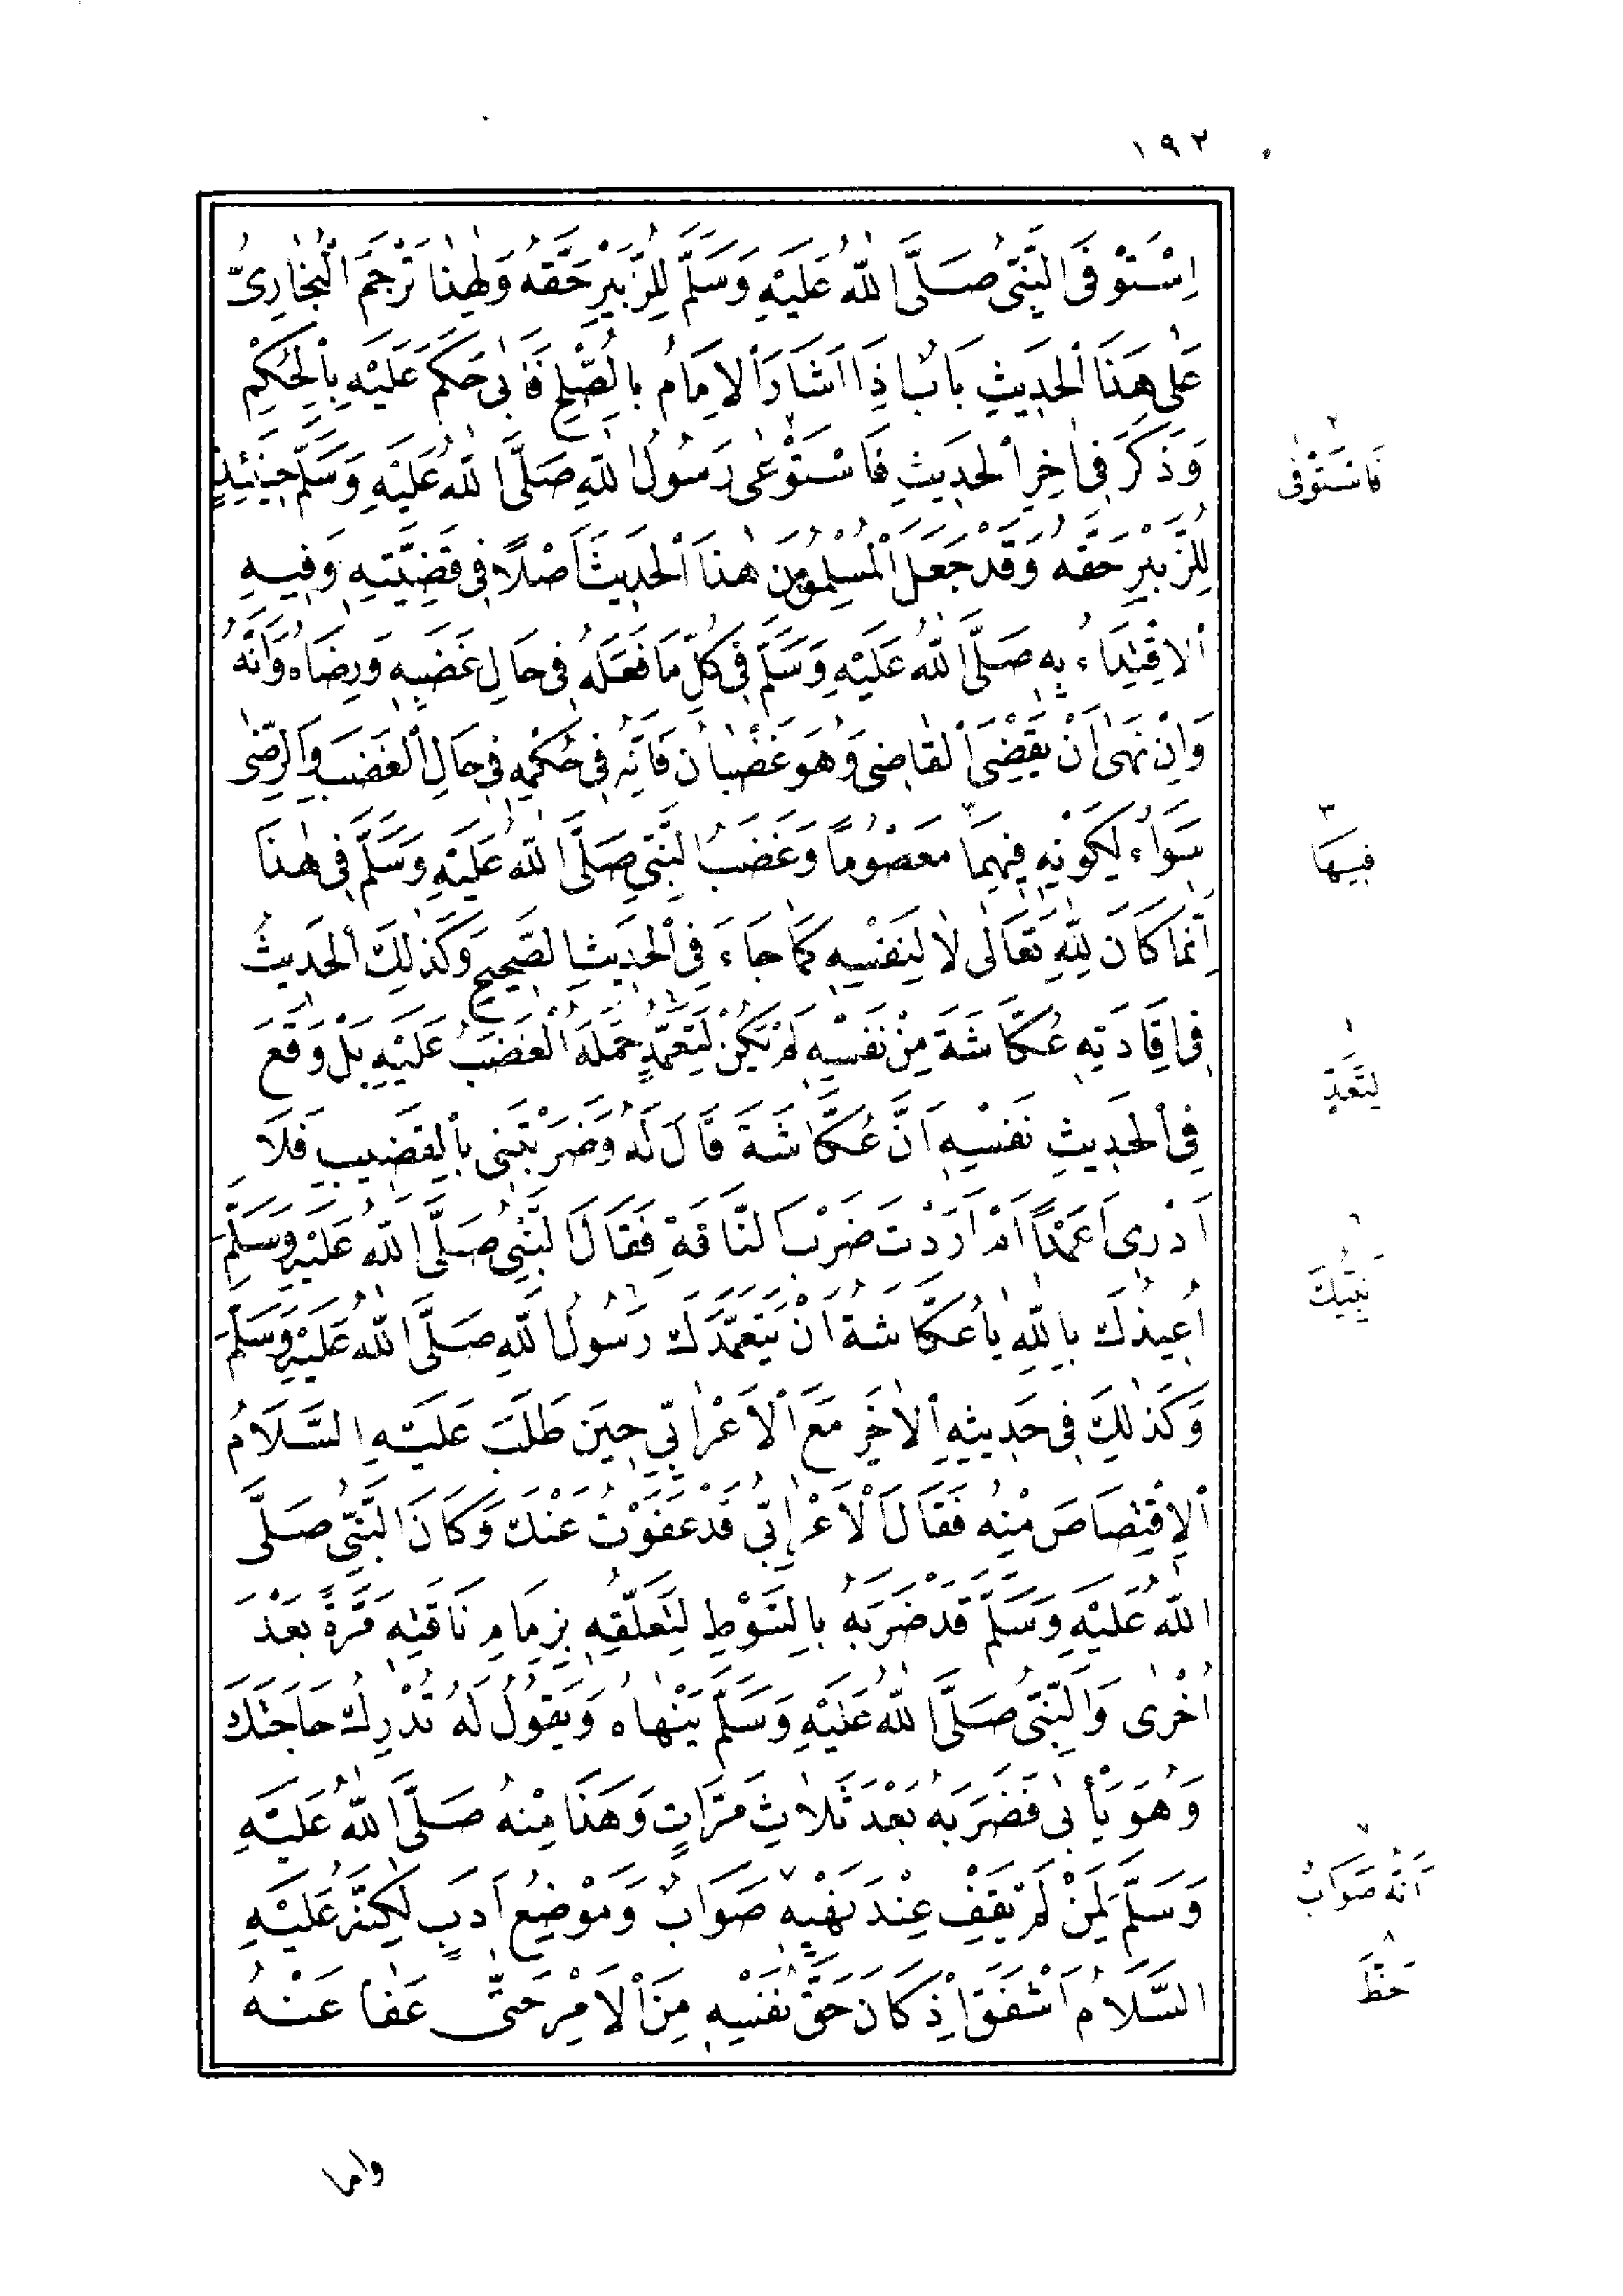 ١٩٢
اِسْتَوْفَى النَّبِىُّ صَلَّى اللّٰهُ عَلَيْهِ وَسَلَّمَ لِلزُّبَيْرِ حَقَّهُ وَلِهٰذَا تَرْجَمَ الْبُخَارِىُّ
عَلٰى هٰذَا الْحَدِيثِ بَابٌ اِذَا اَشَارَ الْاِمَامُ بِالصُّلْحِ فَاَبٰى حَكَمَ عَلَيْهِ بِالْحُكْمِ
وَذَكَرَ فِى اٰخِرِ الْحَدِيثِ فَاسْتَوْعٰى رَسُولُ اللّٰهِ صَلَّى اللّٰهُ عَلَيْهِ وَسَلَّمَ حِينَئِذٍ
لِلزُّبَيْرِ حَقَّهُ وَقَدْ جَعَلَ الْمُسْلِمُونَ هٰذَا الْحَدِيثَ اَصْلًا فِى قَضِيَّتِهِ وَفِيهِ
الْاِقْتِدَاءُ بِهِ صَلَّى اللّٰهُ عَلَيْهِ وَسَلَّمَ فِى كُلِّ مَا فَعَلَهُ فِى حَالِ غَضَبِهِ وَرِضَاهُ وَاَنَّهُ
وَاِنْ نَهٰى اَنْ يَقْضِىَ الْقَاضِى وَهُوَ غَضْبَانُ فَاِنَّهُ فِى حُكْمِهِ فِى حَالِ الْغَضَبِ وَالرِّضٰى
سَوَاءٌ لِكَوْنِهِ فِيهِمَا مَعْصُومًا وَغَضَبُ النَّبِىِّ صَلَّى اللّٰهُ عَلَيْهِ وَسَلَّمَ فِى هٰذَا
اِنَّمَا كَانَ لِلّٰهِ تَعَالٰى لَا لِنَفْسِهِ كَمَا جَاءَ فِى الْحَدِيثِ الصَّحِيحِ وَكَذٰلِكَ الْحَدِيثُ
فِى اِقَادَتِهِ عُكَّاشَةَ مِنْ نَفْسِهِ لَمْ يَكُنْ لِتَعَمُّدٍ حَمَلَهُ الْغَضَبُ عَلَيْهِ بَلْ وَقَعَ
فِى الْحَدِيثِ نَفْسِهِ اَنَّ عُكَّاشَةَ قَالَ لَهُ وَضَرَبْتَنِى بِالْقَضِيبِ فَلَا
اَدْرِى اَعَمْدًا اَمْ اَرَدْتَ ضَرْبَ النَّاقَةِ فَقَالَ النَّبِىُّ صَلَّى اللّٰهُ عَلَيْهِ وَسَلَّمَ
اُعِيذُكَ بِاللّٰهِ يَا عُكَّاشَةُ اَنْ يَتَعَمَّدَكَ رَسُولُ اللّٰهِ صَلَّى اللّٰهُ عَلَيْهِ وَسَلَّمَ
وَكَذٰلِكَ فِى حَدِيثِهِ الْاٰخَرِ مَعَ الْاَعْرَابِىِّ حِينَ طَلَبَ عَلَيْهِ السَّلَامُ
الْاِقْتِصَاصَ مِنْهُ فَقَالَ الْاَعْرَابِىُّ قَدْ عَفَوْتُ عَنْكَ وَكَانَ النَّبِىُّ صَلَّى
اللّٰهُ عَلَيْهِ وَسَلَّمَ قَدْ ضَرَبَهُ بِالسَّوْطِ لِتَعَلُّقِهِ بِزِمَامِ نَاقَتِهِ مَرَّةً بَعْدَ
اُخْرٰى وَالنَّبِىُّ صَلَّى اللّٰهُ عَلَيْهِ وَسَلَّمَ يَنْهَاهُ وَيَقُولُ لَهُ تُدْرِكُ حَاجَتَكَ
وَهُوَ يَأْبٰى فَضَرَبَهُ بَعْدَ ثَلَاثِ مَرَّاتٍ وَهٰذَا مِنْهُ صَلَّى اللّٰهُ عَلَيْهِ
وَسَلَّمَ لِمَنْ لَمْ يَقِفْ عِنْدَ نَهْيِهِ ٧ صَوَابٌ وَمَوْضِعُ اَدَبٍ لٰكِنَّهُ عَلَيْهِ
السَّلَامُ اَشْفَقَ اِذْ كَانَ حَقَّ نَفْسِهِ مِنَ الْاَمْرِ حَتّٰى عَفَا عَنْهُ
فَاسْتَوْفٰى
٣
فِيهَا
لِتَعَدٍّ
٦
نَبِيُّكَ
٧
اَنَّهُ صَوَابٌ
٨
حَظَّ
واما